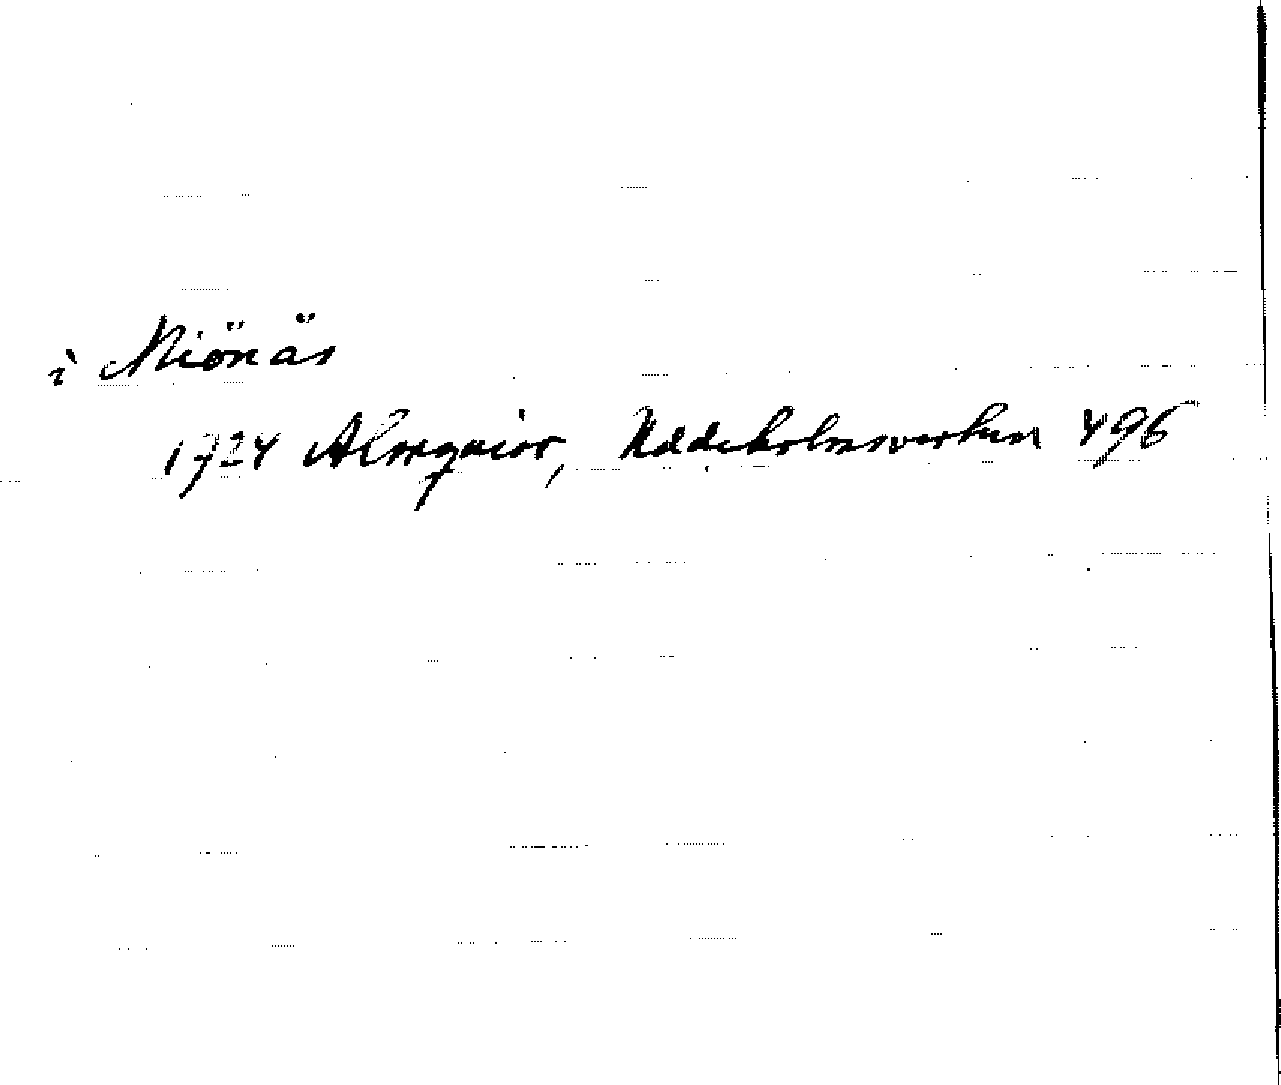 i Miönäs
1724 Almqvist, Uddeholmsverken 496